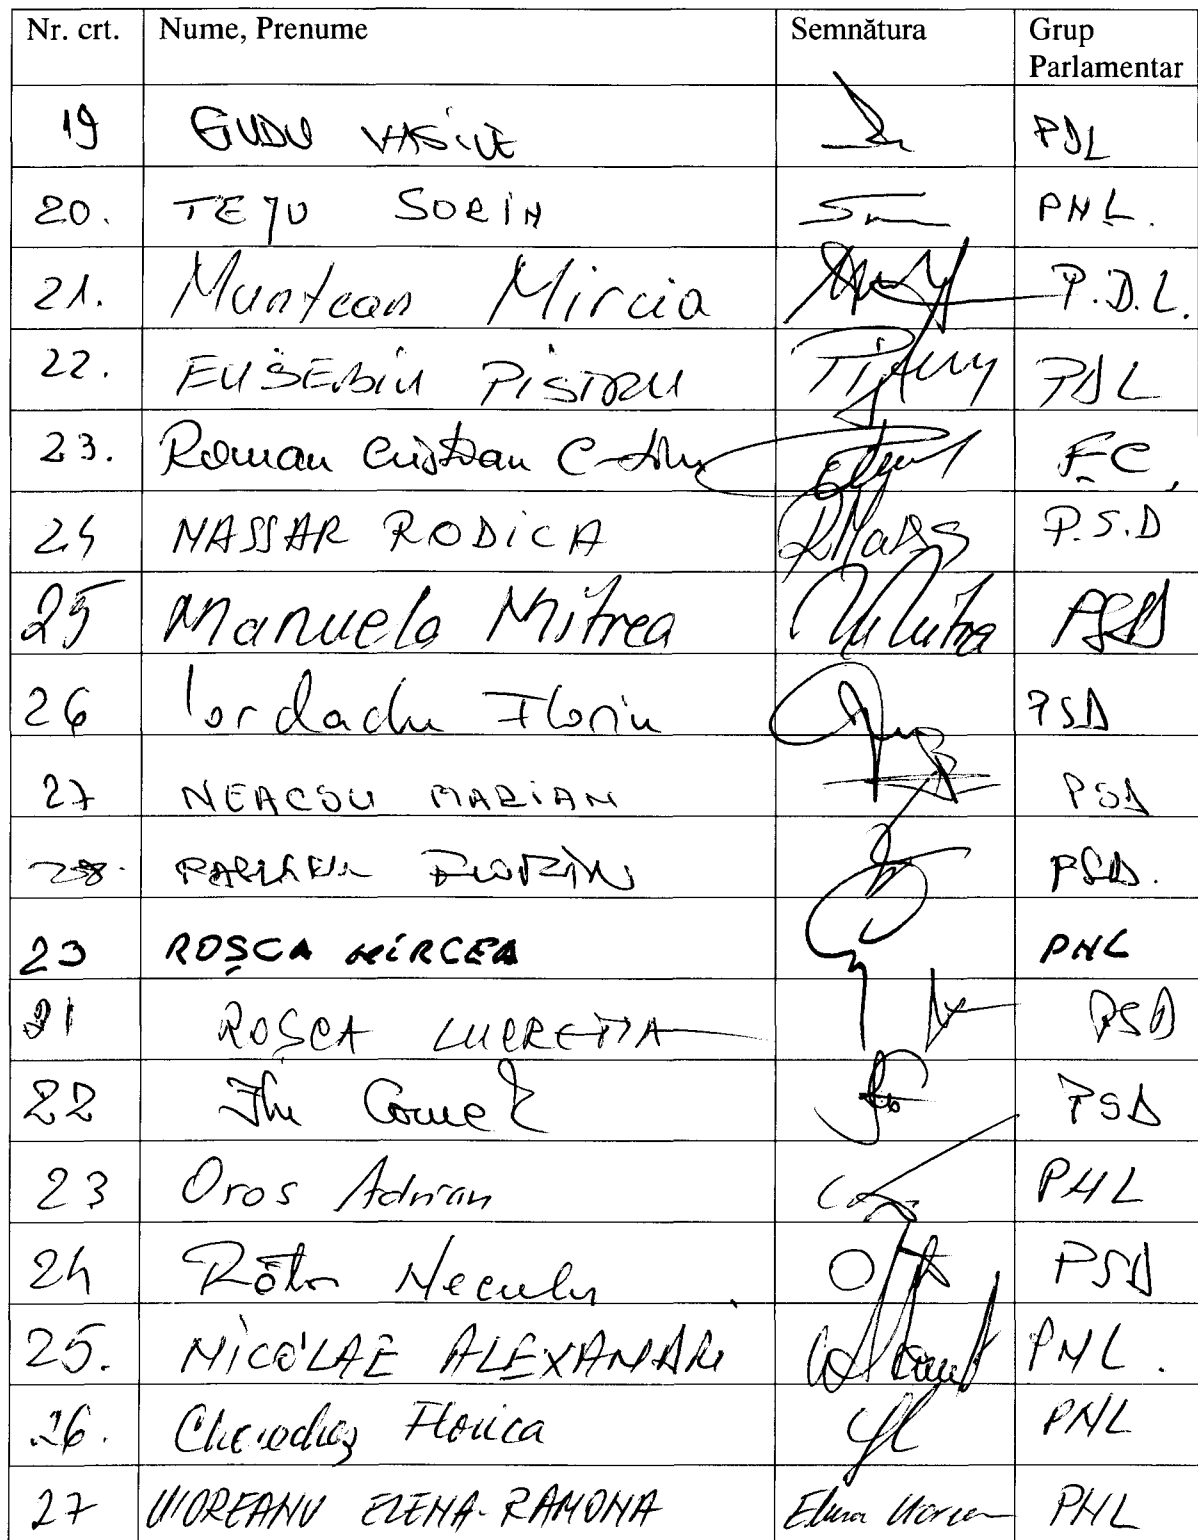 Nr. crt. Nume, Prenume Semnătura Grup Parlamentar
19 GUDU VASILE PDL
20. TEJU SORIN PNL.
21. Muntean Mircia P.D.L.
22. EUSEBIU PISTRU PDL
23. Roman Cristian C-tin FC
24 NASSAR RODICA RNass P.S.D
25 Manuela Mitrea MMitrea PSD
26 Iordache Florin PSD
27 NEACSU MARIAN PSD
28. FLORIN PSD.
23 ROȘCA MIRCEA PNL
21 ROȘCA LUCREȚIA PSD
22 Itu Cornel PSD
23 Oros Adrian PNL
24 Răţoi Neculai PSD
25. NICOLAE ALEXANDRI PNL.
26. Cherecheș Florica PNL
27 UIOREANU ELENA-RAMONA Elena Uioreanu PNL